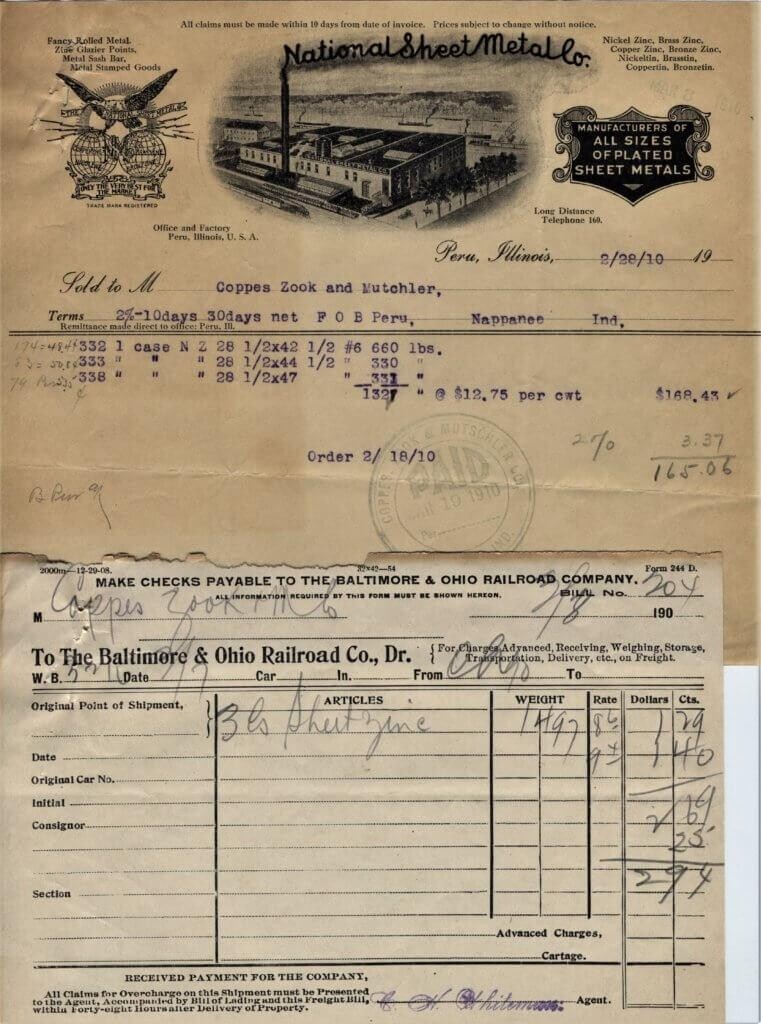 All claims must be made within 10 days from date of invoice. Prices subject to change without notice.
Fancy Rolled Metal.
Zinc Glazier Points,
Metal Sash Bar,
Metal Stamped Goods
National Sheet Metal Co.
Nickel Zinc, Brass Zinc,
Copper Zinc, Bronze Zinc,
Nickeltin, Brasstin,
Coppertin, Bronzetin.
THE NATIONAL SHEET METAL CO.
ONLY THE VERY BEST FOR
THE MARKET
TRADE MARK REGISTERED
MANUFACTURERS OF
ALL SIZES
OF PLATED
SHEET METALS
Office and Factory
Peru, Illinois, U. S. A.
Long Distance
Telephone 160.
Peru, Illinois, 2/28/10 19
Sold to M Coppes Zook and Mutchler,
Terms 2%-10days 30days net F O B Peru, Nappanee Ind,
Remittance made direct to office: Peru, Ill.
332 1 case N Z 28 1/2x42 1/2 #6 660 lbs.
333 " " " 28 1/2x44 1/2 " 330 "
338 " " " 28 1/2x47 " 331 "
1327 " @ $12.75 per cwt $168.43
2% 3.37
165.06
Order 2/ 18/10
ZOOK & MUTSCHLER CO.
PAID
19 1910
Per
IND.
2000m—12-29-08. 32x42—54 Form 244 D.
MAKE CHECKS PAYABLE TO THE BALTIMORE & OHIO RAILROAD COMPANY.
ALL INFORMATION REQUIRED BY THIS FORM MUST BE SHOWN HEREON. BILL No. 204
M Coppes Zook & M Co 3/8 190
To The Baltimore & Ohio Railroad Co., Dr. { For Charges Advanced, Receiving, Weighing, Storage,
Transportation, Delivery, etc., on Freight.
W. B. Date Car In. From To
Original Point of Shipment, ARTICLES WEIGHT Rate Dollars Cts.
3 Cs Sheet Zinc 1497 86 1 29
Date 94 1 40
Original Car No.
Initial 2 69
Consignor 25
2 94
Section
Advanced Charges,
Cartage.
RECEIVED PAYMENT FOR THE COMPANY,
All Claims for Overcharge on this Shipment must be Presented
to the Agent, Accompanied by Bill of Lading and this Freight Bill,
within Forty-eight Hours after Delivery of Property.
C. H. Whiteman. Agent.